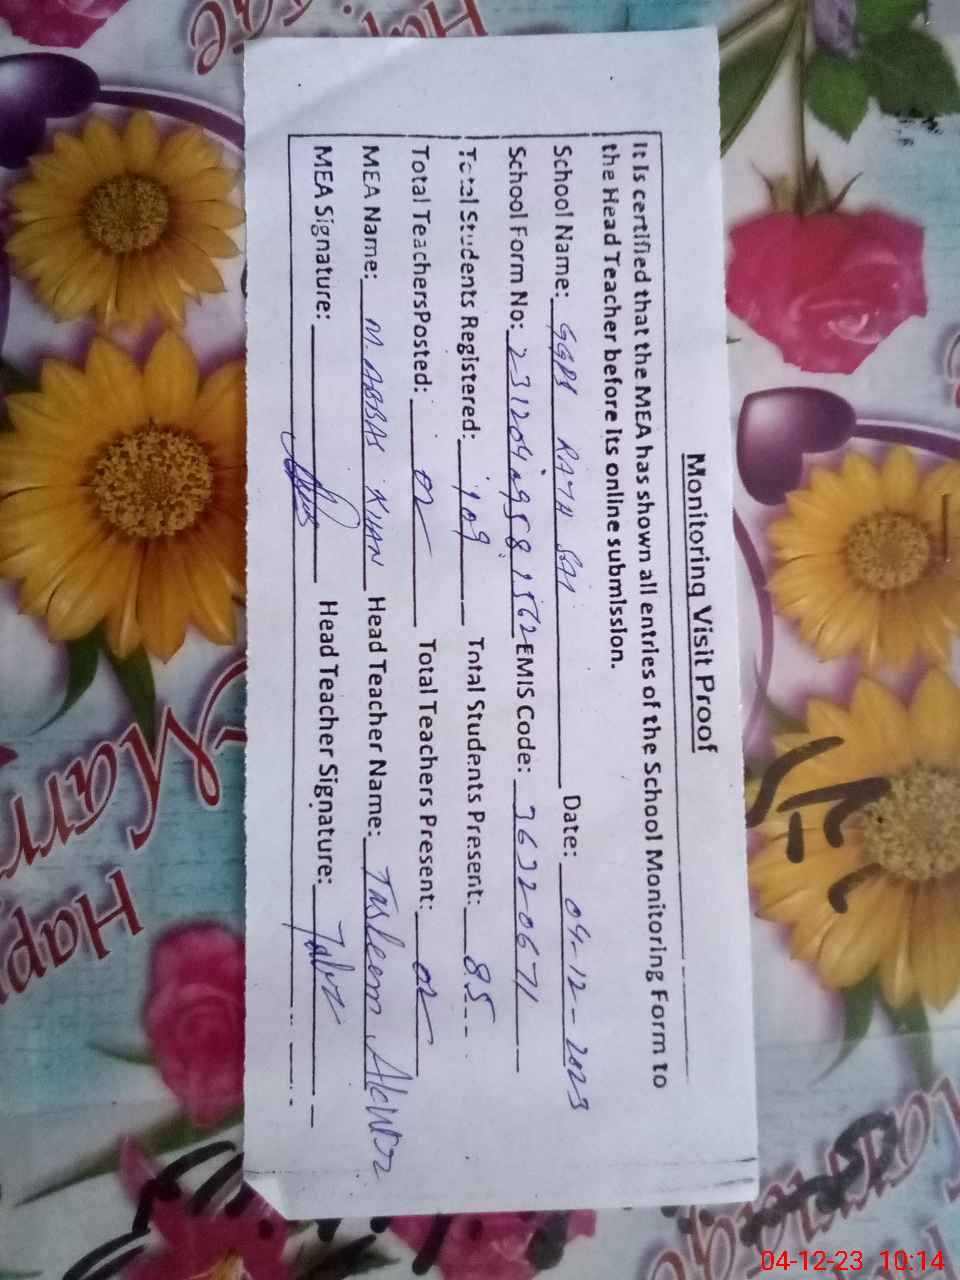 Monitoring Visit Proof
It is certified that the MEA has shown all entries of the School Monitoring Form to
the Head Teacher before its online submission.
School Name: GGPS Date: 04-12-2023
School Form No: EMIS Code: 36320671
Total Students Registered: 109 Total Students Present: 85
Total TeachersPosted: 02 Total Teachers Present: 02
MEA Name: M. ABBAS KHAN Head Teacher Name: Tasleem Akhtar
MEA Signature: Head Teacher Signature:
04-12-23 10:14